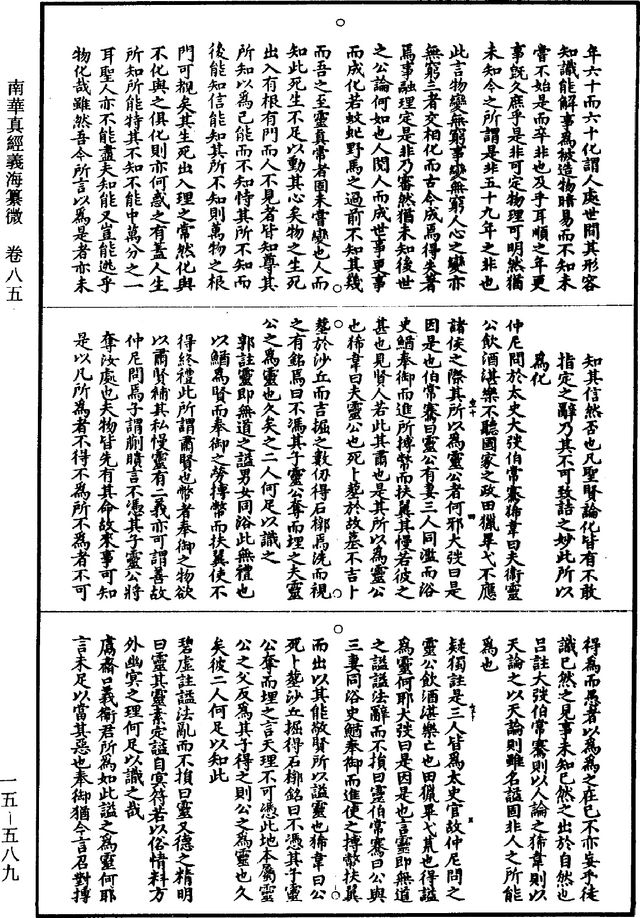 年六十而六十化謂人處世間其形容
知識能解事為被造物暗易而不知未
嘗不始是而卒非也及乎耳順之年更
事既久庶乎是非可定物理可明然猶
未知今之所謂是非五十九年之非也
此言物變無窮事變無窮人心之變亦
無窮三者交相化而古今成焉得失著
焉事融理定是非乃審然猶未知後世
之公論何如也人閱人而成世事更事
而成化若蚊虻野馬之過前不知其幾
而吾之至靈真常者固未嘗變也人而
知此死生不足以動其心矣物之生死
出入有根有門而人不見者皆知尊其
所知以為己能而不知恃其所不知而
後能知信能知其所不知則萬物之根
門可覩矣其生死出入理之常然化與
不化與之俱化則亦何惑之有蓋人生
所知所能特其不知不能中萬分之一
耳聖人亦不能盡夫知能又豈能逃乎
物化哉雖然吾今所言以為是者亦未
知其信然否也凡聖賢論化皆有不敢
指定之辭乃其不可致詰之妙此所以
為化
仲尼問於太史大弢伯常騫狶韋曰夫衛靈
公飲酒湛樂不聽國家之政田獵畢弋不應
諸侯之際其所以為靈公者何邪大弢曰是
因是也伯常騫曰靈公有妻三人同濫而浴
史鰌奉御而進所搏幣而扶翼其慢若彼之
甚也見賢人若此其肅也是其所以為靈公
也狶韋曰夫靈公也死卜葬於故墓不吉卜
葬於沙丘而吉掘之數仞得石槨焉洗而視
之有銘焉曰不馮其子靈公奪而埋之夫靈
公之為靈也久矣之二人何足以識之
郭註靈即無道之謚男女同浴此無禮也
以鰌為賢而奉御之勞搏幣而扶翼使不
得終禮此所謂肅賢也幣者奉御之物欲
以肅賢補其私慢靈有二義亦可謂善故
仲尼問焉子謂蒯瞶言不憑其子靈公將
奪汝處也夫物皆先有其命故來事可知
是以凡所為者不得不為所不為者不可
得為而愚者以為為之在己不亦妄乎徒
識已然之見事未知已然之出於自然也
呂註大弢伯常騫則以人論之狶韋則以
天論之以天論則雖名謚固非人之所能
為也
疑獨註是三人皆為太史官故仲尼問之
靈公飲酒湛樂亡也田獵畢弋荒也得謚
為靈何耶大弢曰是因是也言靈即無道
之謚謚法辭而不損曰靈伯常騫曰公與
三妻同浴史鰌奉御而進使之搏幣扶翼
而出以其能敬賢所以謚靈也狶韋曰公
死卜葬沙丘掘得石槨銘曰不憑其子靈
公奪而埋之言天理不可憑此地本屬靈
公之父反為其子得之則公之為靈也久
矣彼二人何足以知此
碧虛註謚法亂而不損曰靈又德之精明
曰靈其靈素定謚自冥符若以俗情料方
外幽冥之理何足以識之哉
鬳齋口義衛君所為如此謚之為靈何耶
言未足以當其惡也奉御猶今言召對搏
南華真經義海纂微　卷八五
一五—五八九